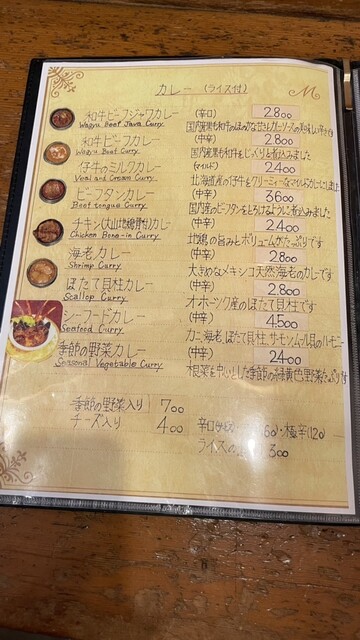 カレー (ライス付)
和牛ビーフジャワカレー (辛口) 2.800
Wagyu Beef Java Curry
和牛ビーフカレー (中辛) 2.800
Wagyu Beef Curry 国内産黒毛和牛をじっくりと煮込みました
仔牛のミルクカレー (マイルド) 2.400
Veal and Cream Curry 北海道産の仔牛をクリーミーなマイルドカレーにしました
ビーフタンカレー (中辛) 3600
Beef tongue Curry 国内産のビフタンをとろけるように煮込みました
チキン(大山地鶏骨付)カレー (中辛) 2.400
Chicken Bone-in Curry 地鶏の旨みとボリュームがたっぷりです
海老カレー (中辛) 2.800
Shrimp Curry 大きめなメキシコ天然海老のカレーです
ほたて貝柱カレー (中辛) 2.800
Scallop Curry オホーツク産のほたて貝柱です
シーフードカレー (中辛) 4.500
Seafood Curry カニ、海老、ほたて貝柱、サーモン、ムール貝のハーモニー
季節の野菜カレー (中辛) 2400
Seasonal Vegetable Curry 根菜を中心とした季節の緑黄色野菜たっぷりです
季節の野菜入り 700
チーズ入り 400
辛口 ・極辛(120)
ライスの 300